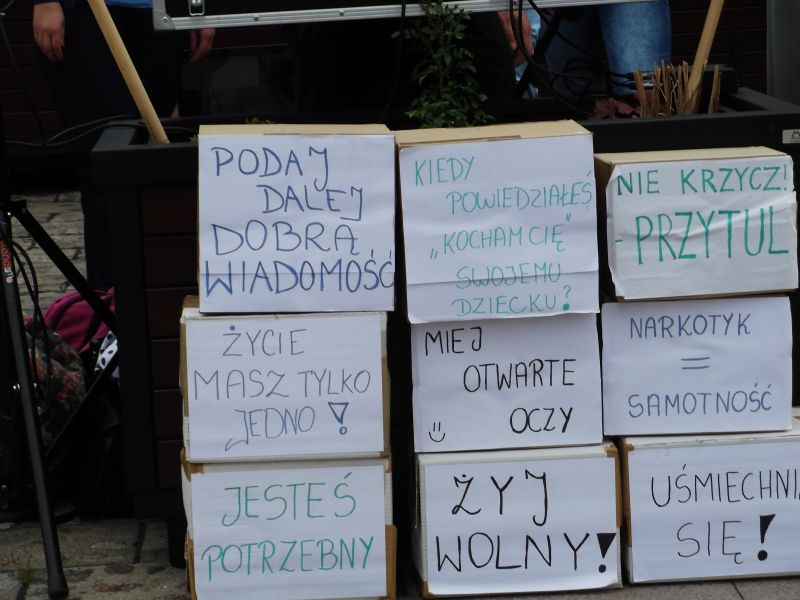 PODAJ
DALEJ
DOBRĄ
WIADOMOŚĆ
KIEDY
POWIEDZIAŁEŚ
„KOCHAM CIĘ"
SWOJEMU
DZIECKU?
NIE KRZYCZ!
- PRZYTUL
ŻYCIE
MASZ TYLKO
JEDNO!
MIEJ
OTWARTE
OCZY
NARKOTYK
=
SAMOTNOŚĆ
JESTEŚ
POTRZEBNY
ŻYJ
WOLNY!
UŚMIECHNI
SIĘ!